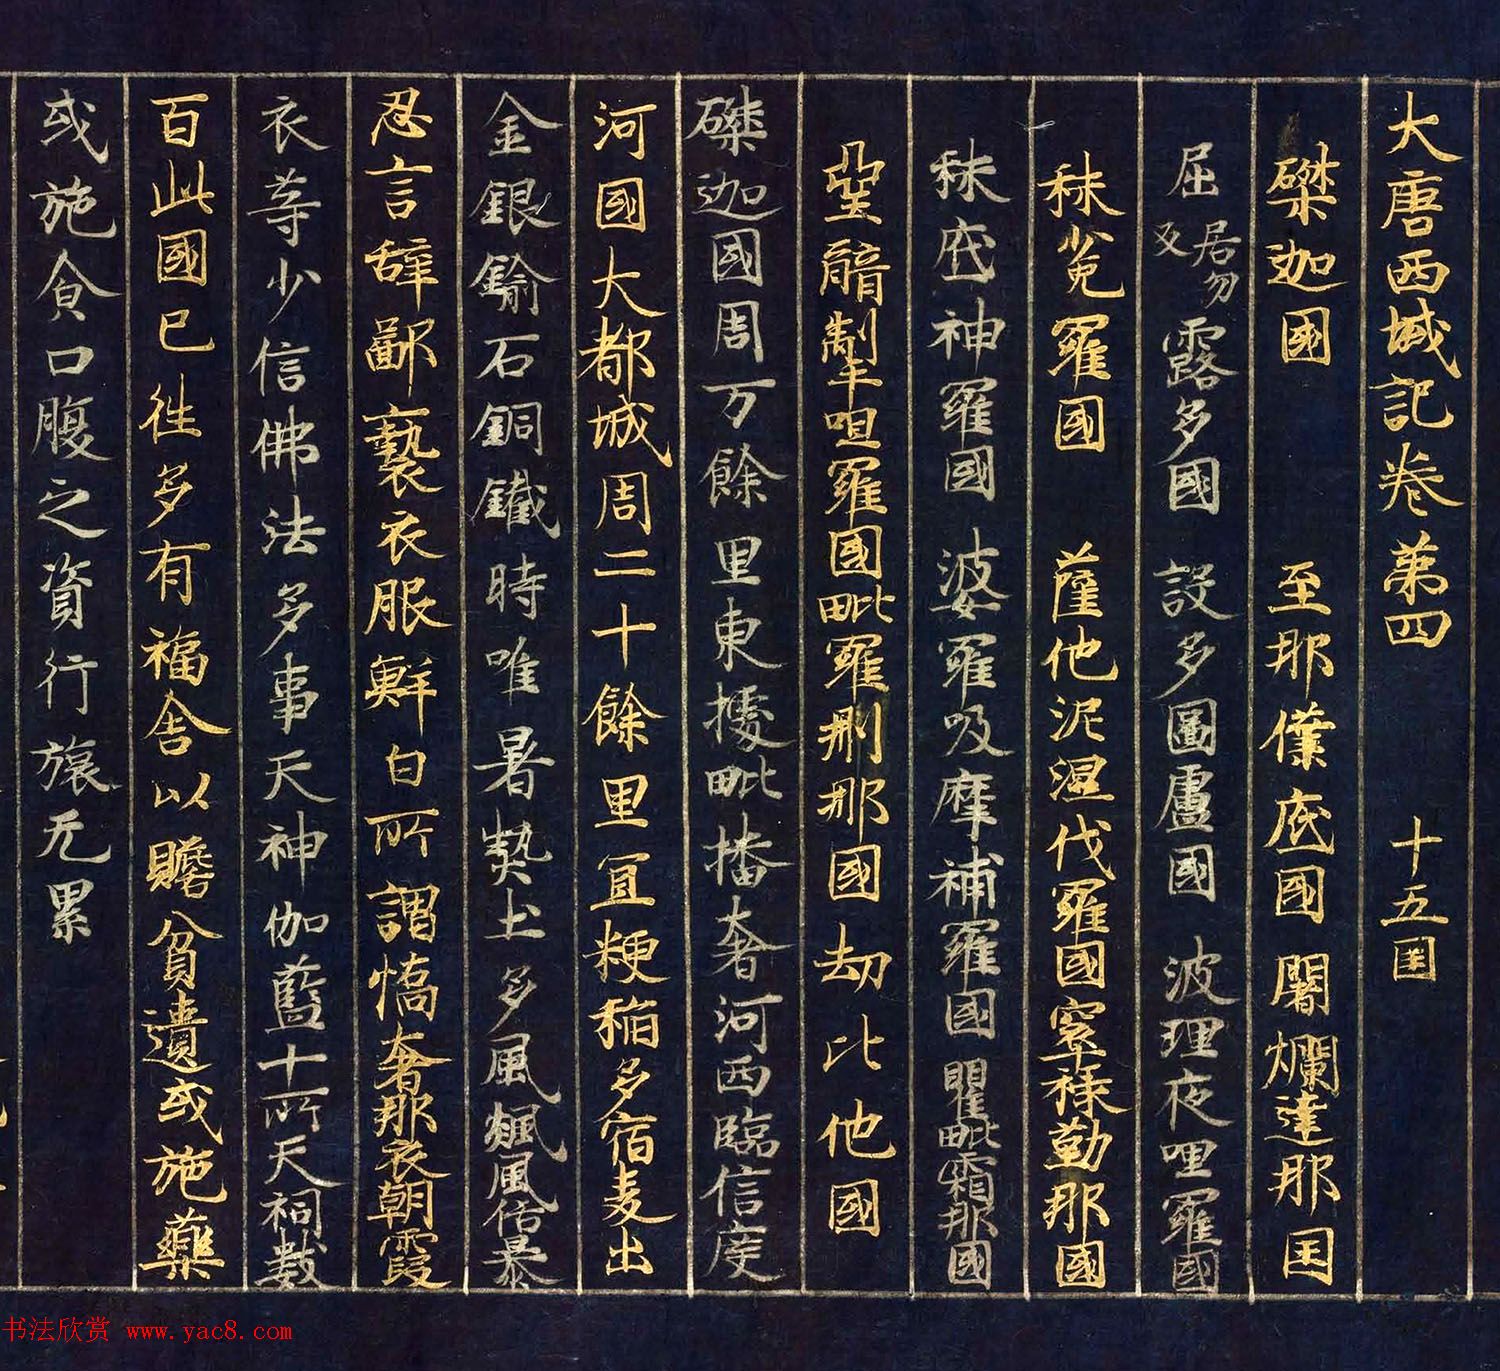 大唐西域記卷第四 十五国
磔迦国 至那僕底國 闍爛達那国
屈居勿反露多國 設多圖盧國 波理夜呾羅國
秣兔羅國 薩他泥濕伐羅國 窣祿勤那國
秣底補羅國 婆羅吸摩補羅國 瞿毗霜那國
堊醯掣呾羅國 毗羅刪那國 劫比他國
磔迦國周万餘里東據毗播奢河西臨信度
河國大都城周二十餘里冝粳稻多宿麦出
金銀鍮石銅鐵時唯暑熱土多風飈風俗暴
忍言辞鄙褻衣服鮮白所謂憍奢那衣朝霞
衣等少信佛法多事天神伽藍十所天祠數
百此國已徃多有福舎以贍貧遺或施藥
或施食口腹之資行旅无累
书法欣赏 www.yac8.com